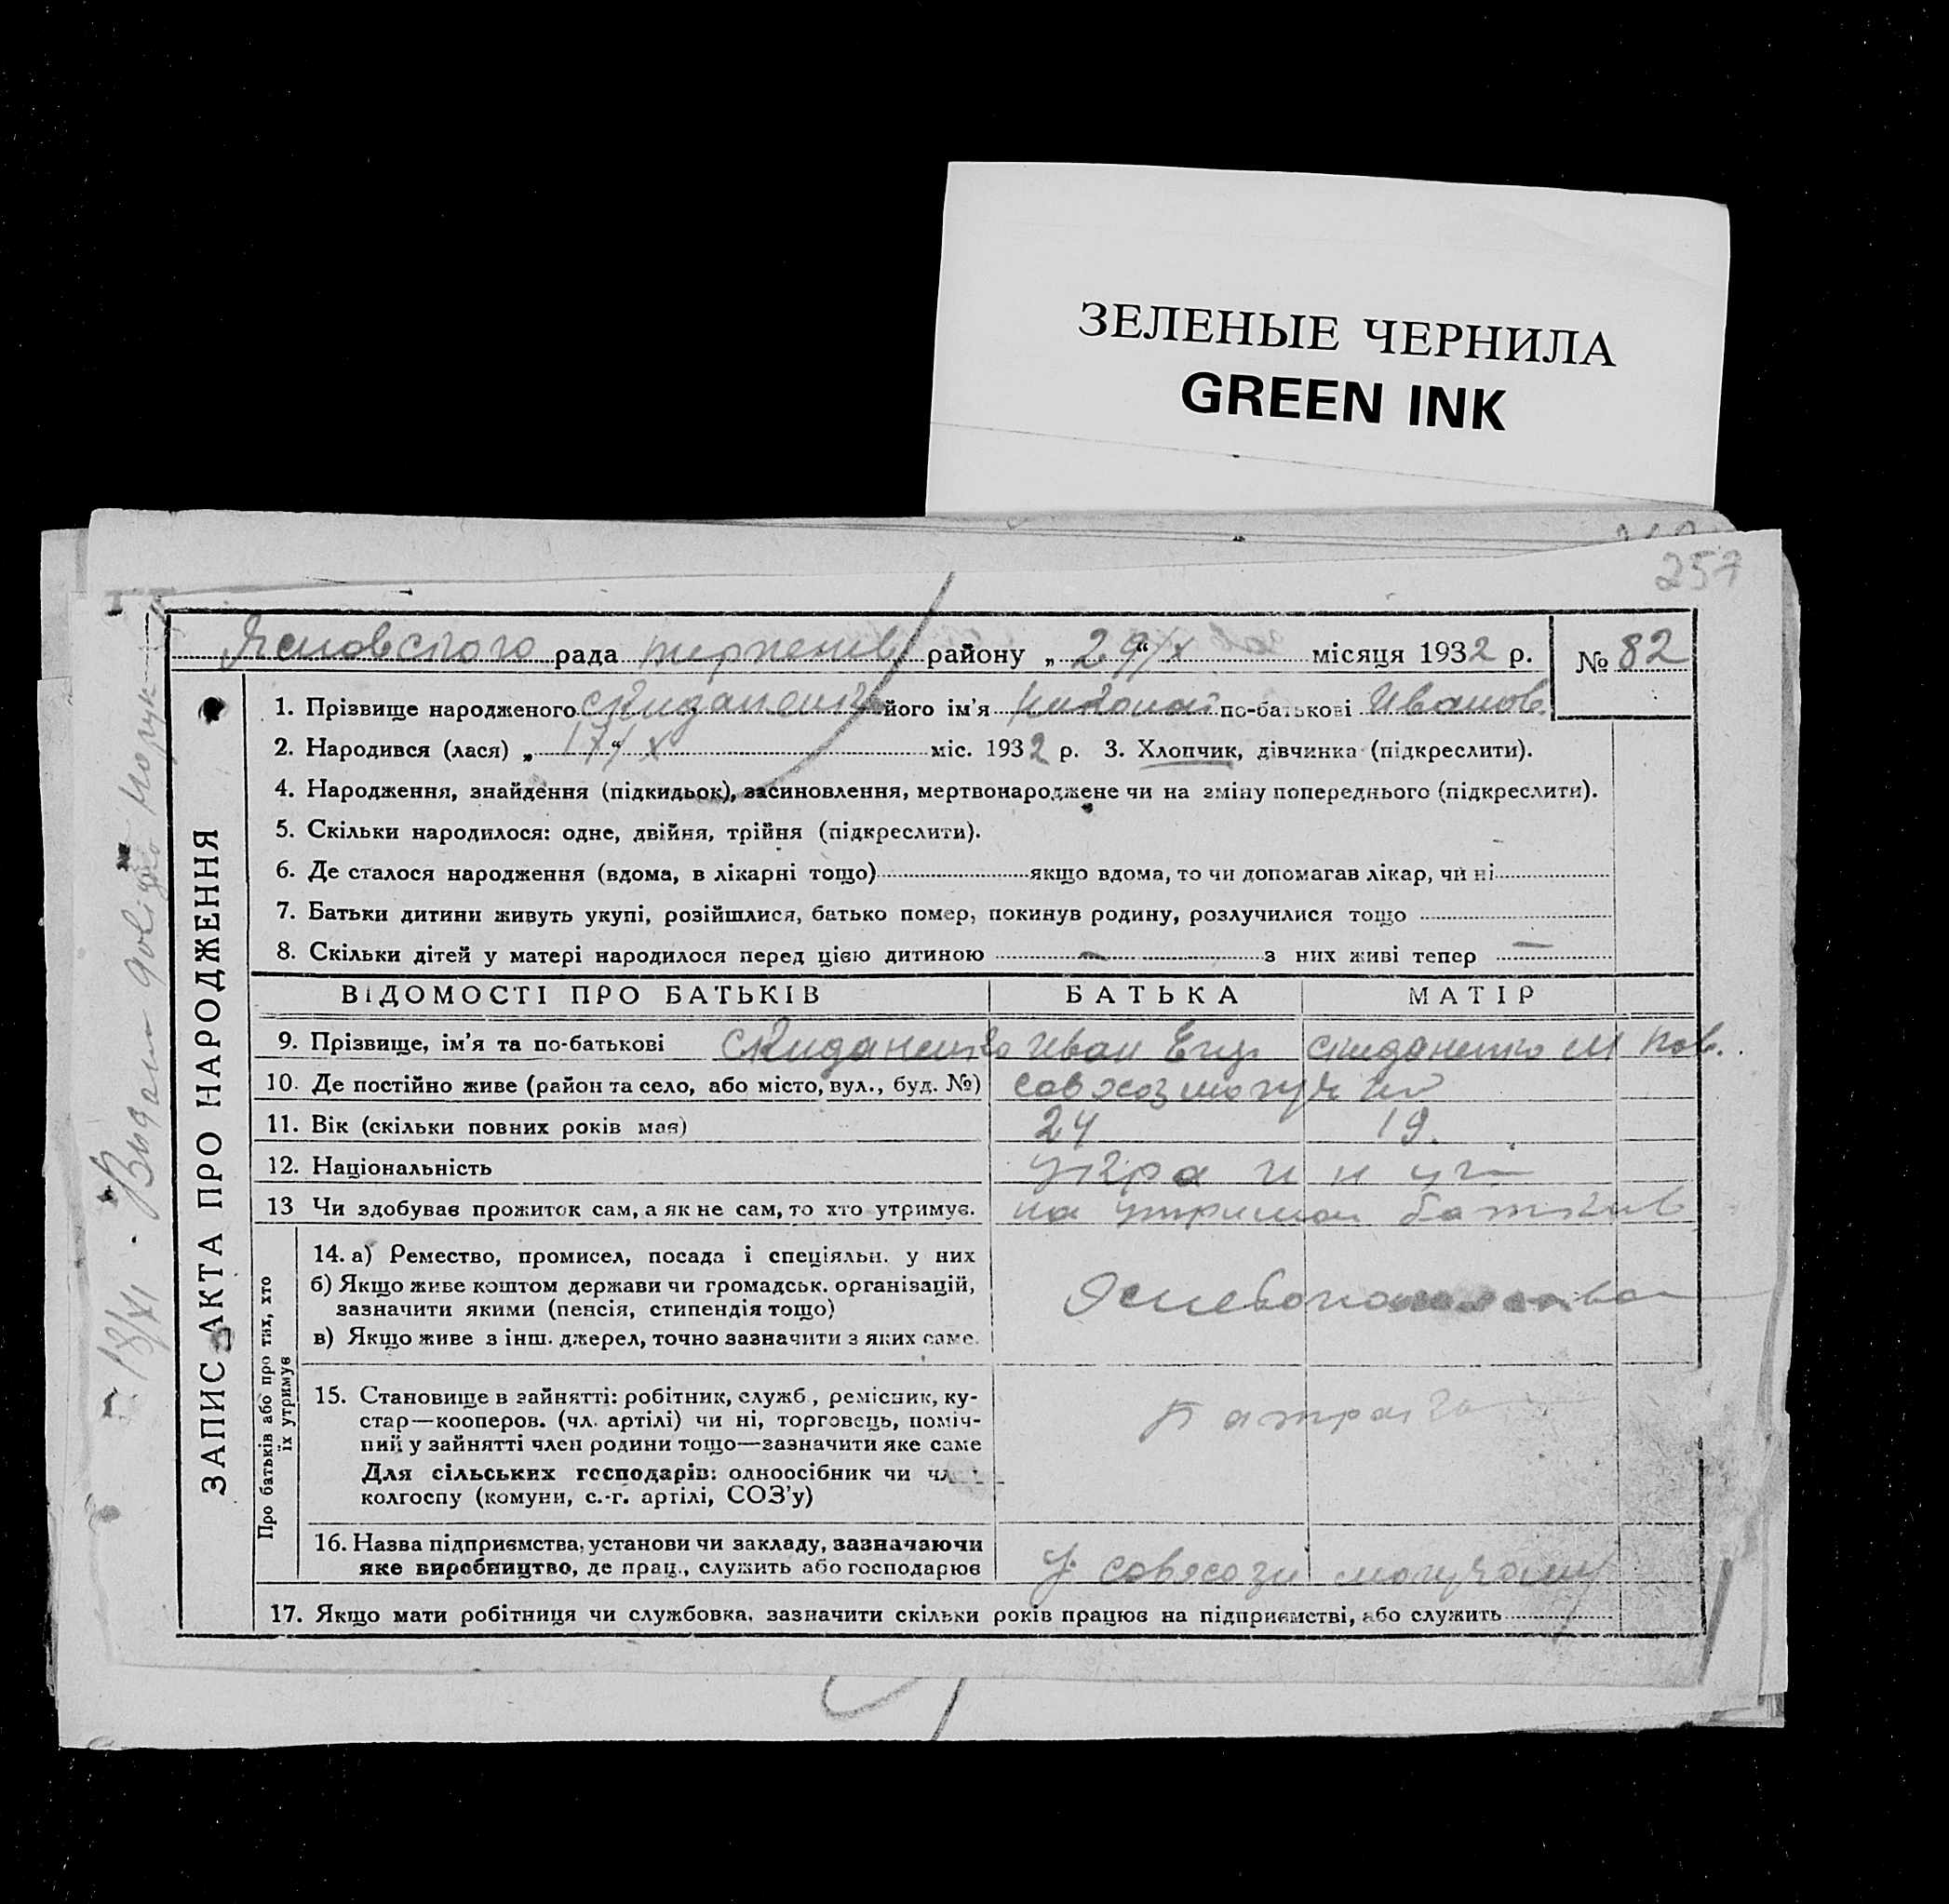 ЗЕЛЕНЫЕ ЧЕРНИЛА
GREEN INK
257
рада району „29/х“ місяця 1932 р. № 82
ЗАПИС АКТА ПРО НАРОДЖЕННЯ
1. Прізвище народженого Скиданенко його ім'я по-батькові Иванов.
2. Народився (лася) „17/х“ міс. 1932 р. 3. Хлопчик, дівчинка (підкреслити).
4. Народження, знайдення (підкидьок), засиновлення, мертвонароджене чи на зміну попереднього (підкреслити).
5. Скільки народилося: одне, двійня, трійня (підкреслити).
6. Де сталося народження (вдома, в лікарні тощо) якщо вдома, то чи допомагав лікар, чи ні
7. Батьки дитини живуть укупі, розійшлися, батько помер, покинув родину, розлучилися тощо
8. Скільки дітей у матері народилося перед цією дитиною — з них живі тепер —
ВІДОМОСТІ ПРО БАТЬКІВ БАТЬКА МАТІР
9. Прізвище, ім'я та по-батькові Скиданенко Иван Скиданенко М Пав.
10. Де постійно живе (район та село, або місто, вул., буд. №) совхоз
11. Вік (скільки повних років має) 24 19.
12. Національність
13 Чи здобуває прожиток сам, а як не сам, то хто утримує. на утриман батьків
Про батьків або про тих, хто їх утримує
14. а) Ремество, промисел, посада і спеціяльн. у них
б) Якщо живе коштом держави чи громадськ. організацій,
зазначити якими (пенсія, стипендія тощо)
в) Якщо живе з інш. джерел, точно зазначити з яких саме.
15. Становище в зайнятті: робітник, служб., ремісник, ку-
стар—кооперов. (чл. артілі) чи ні, торговець, поміч-
ний у зайнятті член родини тощо—зазначити яке саме
Для сільських господарів: одноосібник чи
колгоспу (комуни, с.-г. артілі, СОЗ'у)
16. Назва підприємства, установи чи закладу, зазначаючи
яке виробництво, де прац., служить або господарює У совхози
17. Якщо мати робітниця чи службовка, зазначити скільки років працює на підприємстві, або служить